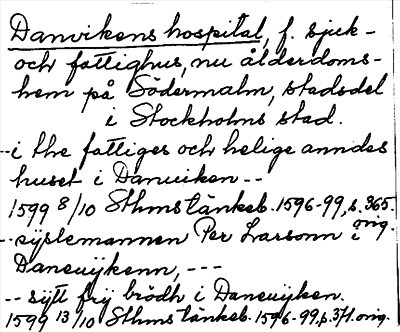 Danvikens hospital, f. sjuk-
och fattighus, nu ålderdoms-
hem på Södermalm, stadsdel
i Stockholms stad.
--i the fattiges och helige anndes
huset i Danuiken--
1599 8/10 Sthms tänkeb. 1596-99, s. 365. orig.
--syslemannen Per Larsonn i
Daneuijkenn, ---
-- sytt frij brödh i Daneuijken.
1599 13/10 Sthms tänkeb. 1596-99, s. 371. orig.